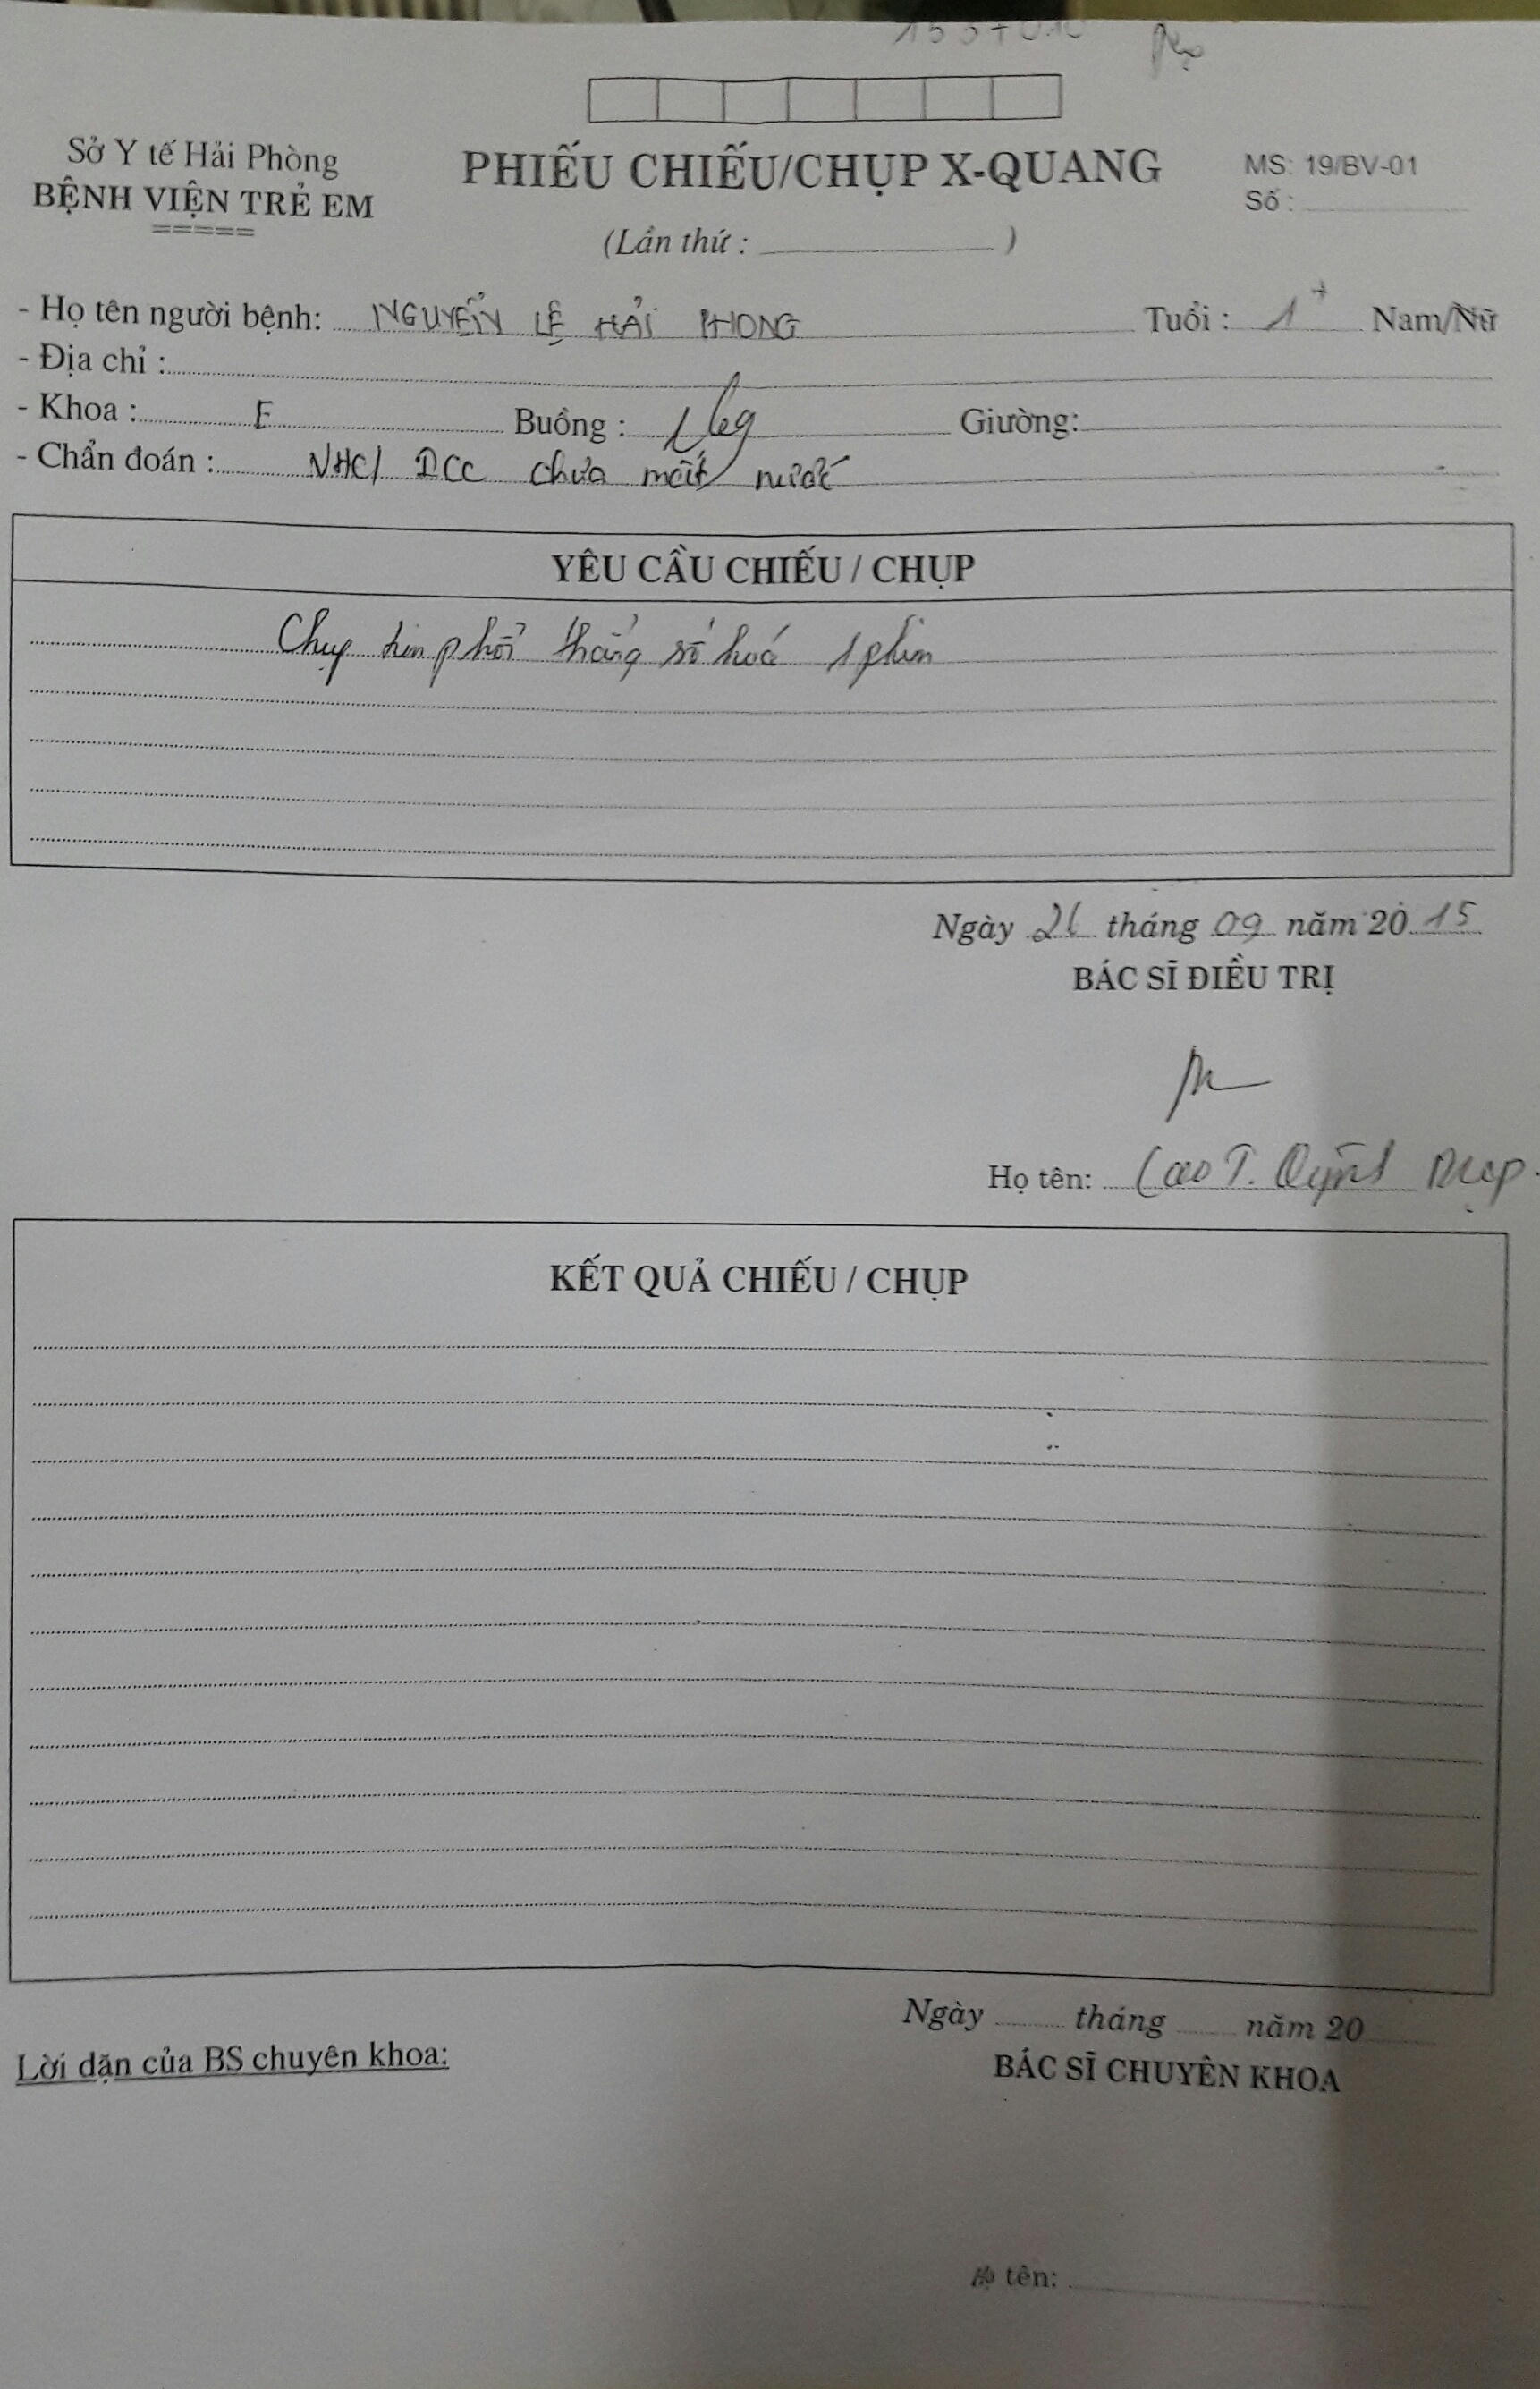 Sở Y tế Hải Phòng
BỆNH VIỆN TRẺ EM
=====
PHIẾU CHIẾU/CHỤP X-QUANG
(Lần thứ : )
MS: 19/BV-01
Số :
- Họ tên người bệnh: NGUYỄN LÊ HẢI PHONG Tuổi : 1+ Nam/Nữ
- Địa chỉ :
- Khoa : E Buồng : Giường:
- Chẩn đoán : VHC/ DCC chưa mất nước
YÊU CẦU CHIẾU / CHỤP
Chụp tim phổi thẳng số hoá 1 phim
Ngày tháng 09 năm 20 15
BÁC SĨ ĐIỀU TRỊ
Họ tên: Cao T. Quỳnh
KẾT QUẢ CHIẾU / CHỤP
Ngày tháng năm 20
Lời dặn của BS chuyên khoa:
BÁC SĨ CHUYÊN KHOA
Họ tên: